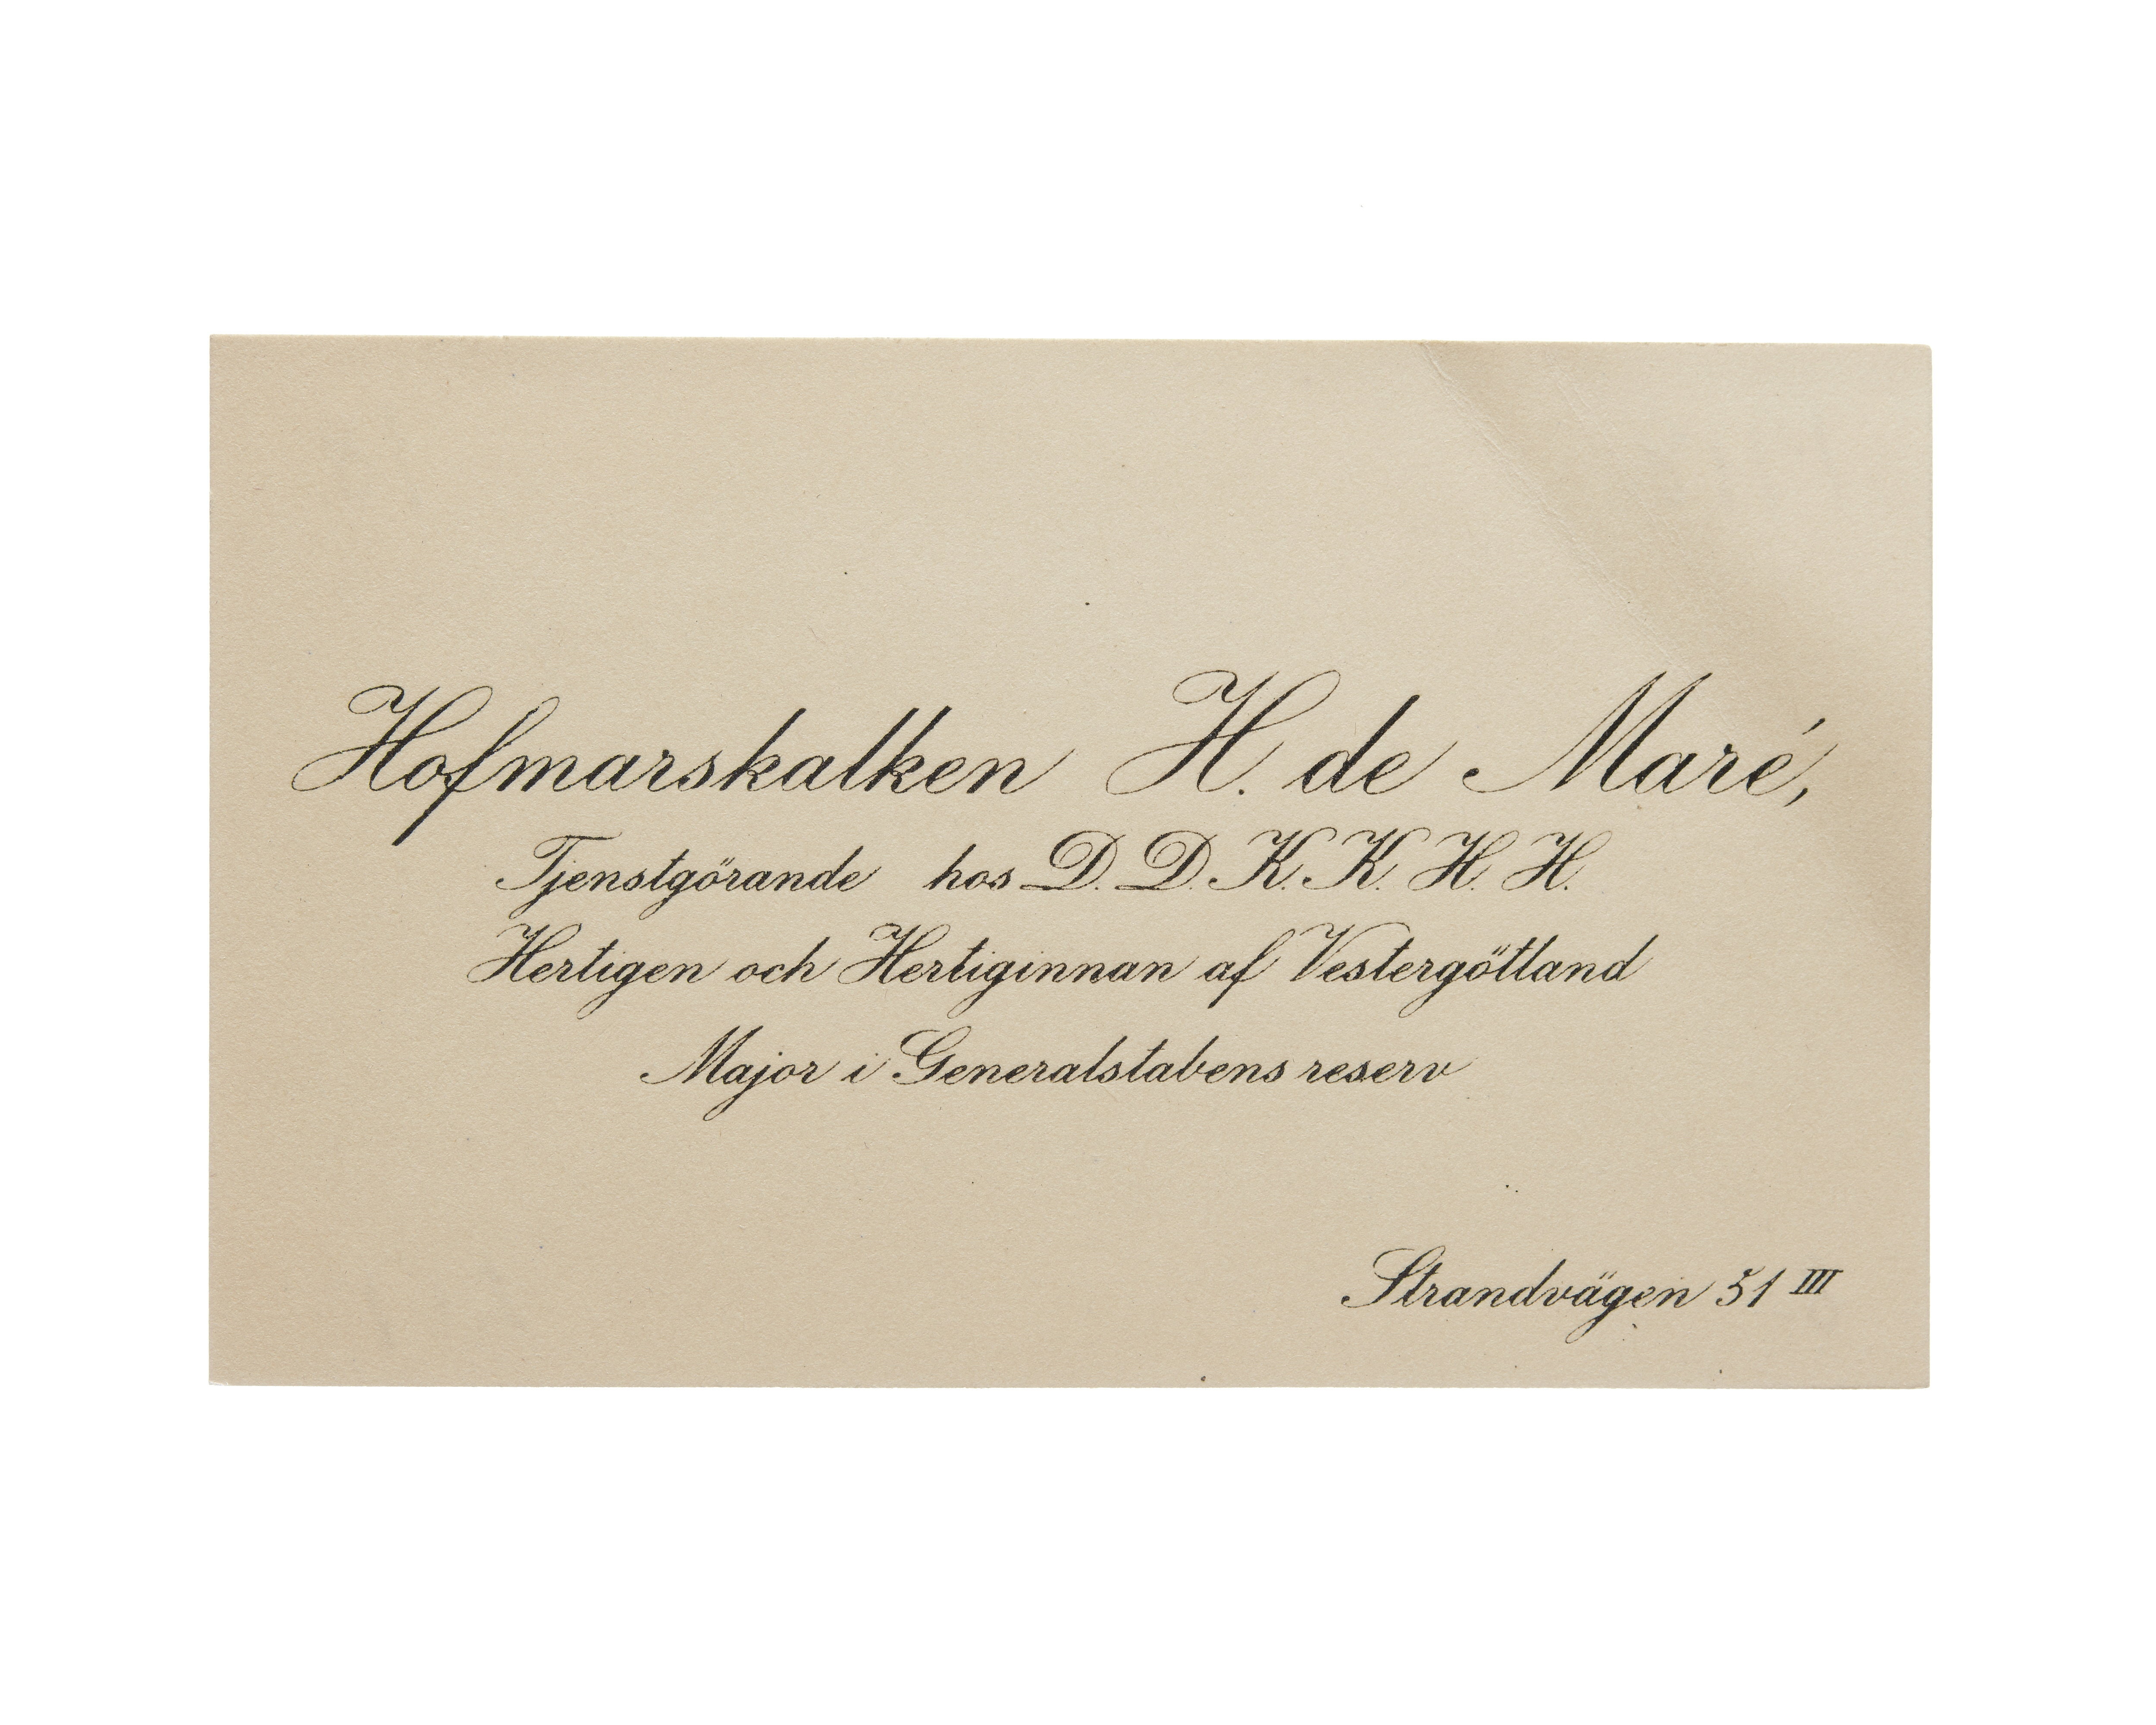 Hofmarskalken H. de Maré,
Tjenstgörande hos D. D. K. K. H. H.
Hertigen och Hertiginnan af Vestergötland
Major i Generalstabens reserv
Strandvägen 51 III